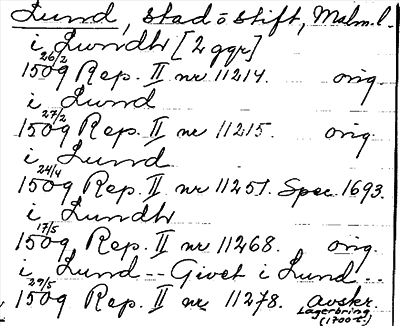 Lund, stad o stift, Malm.l.
i Lwndh [2 ggr]
1509 26/2 Rep. II nr 11214. orig.
i Lwnd
1509 27/2 Rep. II nr 11215. orig.
i Lund
1509 24/4 Rep. II nr 11251. Spec 1693.
i Lundh
1509 17/5 Rep. II nr 11268. orig.
i Lund -- Givet i Lund --
1509 29/5 Rep. II nr 11278. avskr.
Lagerbring
(1700-t.)